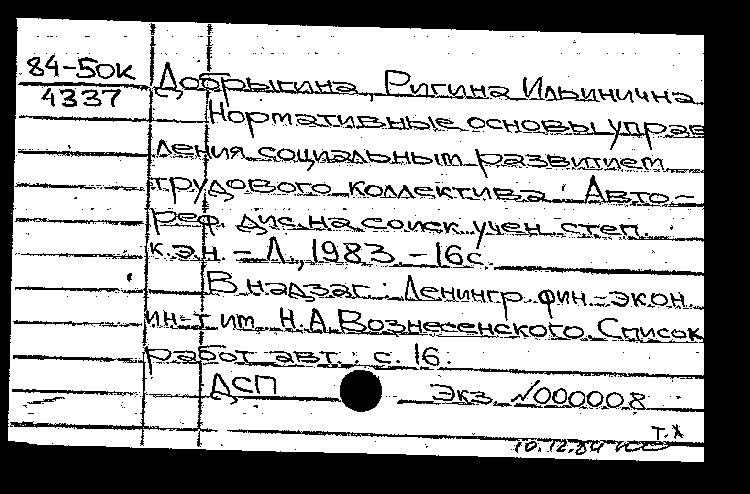 84-5ОК
4337
Добрыгина, Ригина Ильинична
Нормативные основы управ
ления социальным развитием
трудового коллектива : Авто-
реф. дис. на соиск. учен. степ.
к.э.н. - Л., 1983. - 16 с.
В надзаг.: Ленингр. фин.-экон.
ин-т им. Н.А. Вознесенского. Список
работ авт.: с. 16.
ДСП Экз. №000008
т.х
10.12.84